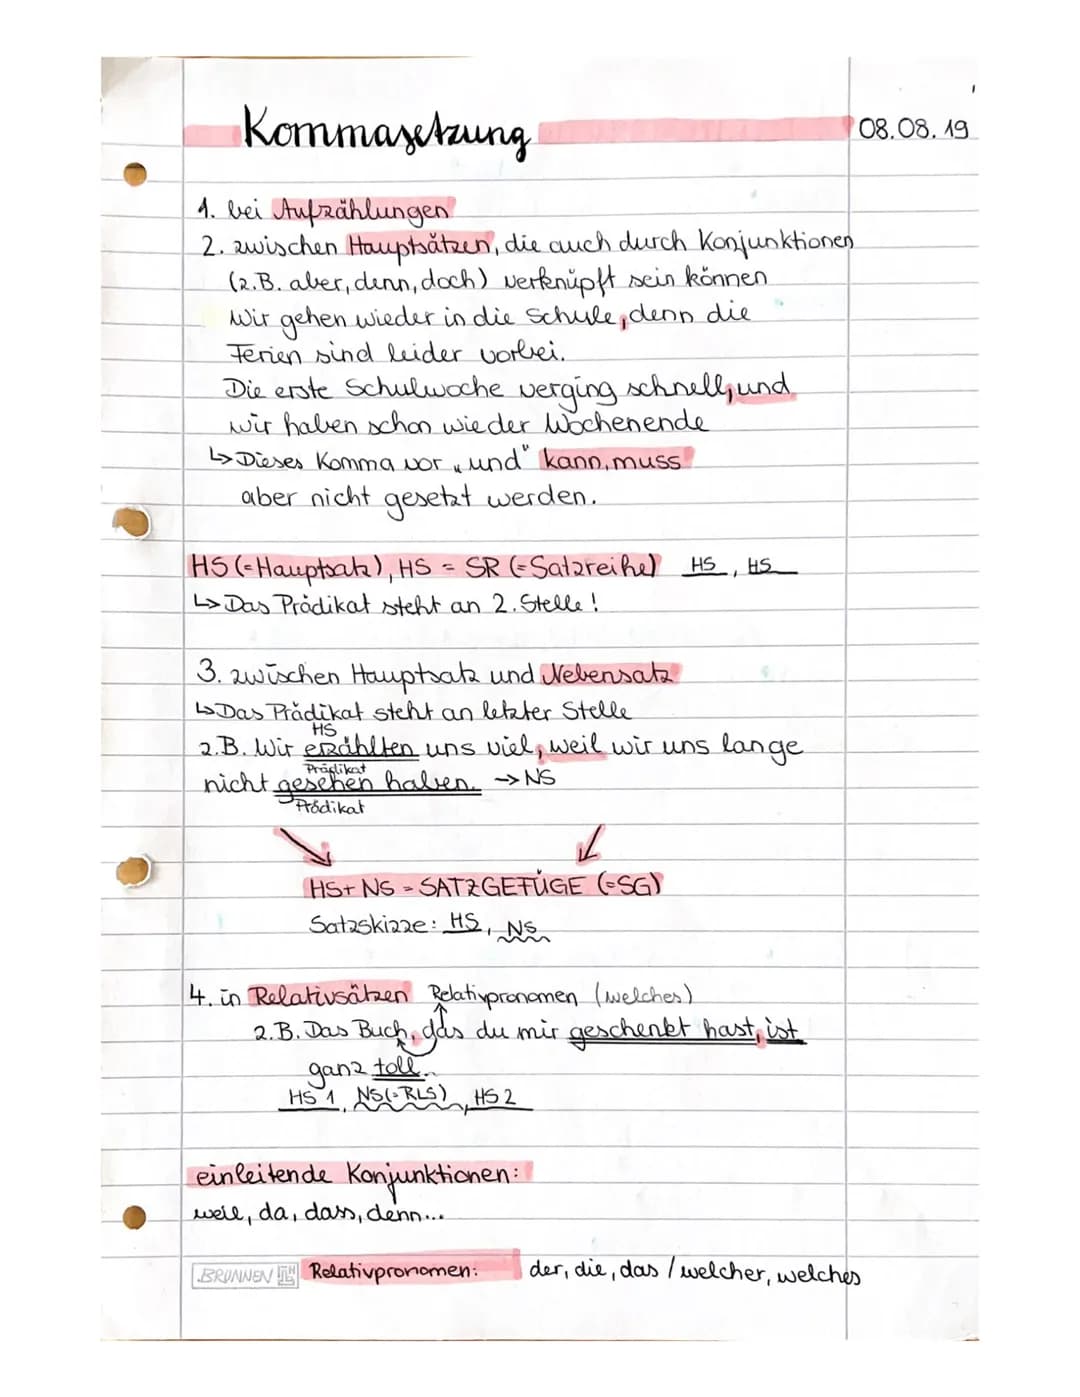 Kommasetzung
08.08.19
1. bei Aufzählungen
2. zwischen Hauptsätzen, die auch durch Konjunktionen
(z.B. aber, denn, doch) verknüpft sein können
Wir gehen wieder in die Schule, denn die
Ferien sind leider vorbei.
Die erste Schulwoche verging schnell, und
wir haben schon wieder Wochenende
↳ Dieses Komma vor „und" kann, muss
aber nicht gesetzt werden.
HS (=Hauptsatz), HS = SR (=Satzreihe) HS, HS
↳ Das Prädikat steht an 2. Stelle!
3. zwischen Hauptsatz und Nebensatz
↳ Das Prädikat steht an letzter Stelle
HS
z.B. Wir erzählten uns viel, weil wir uns lange
Prädikat
nicht gesehen haben. → NS
Prädikat
HS + NS = SATZGEFÜGE (=SG)
Satzskizze: HS, NS
4. in Relativsätzen Relativpronomen (welches)
z.B. Das Buch, das du mir geschenkt hast, ist
ganz toll.
HS 1, NS (=RLS), HS 2
einleitende Konjunktionen:
weil, da, dass, denn...
BRUNNEN Relativpronomen: der, die, das / welcher, welches